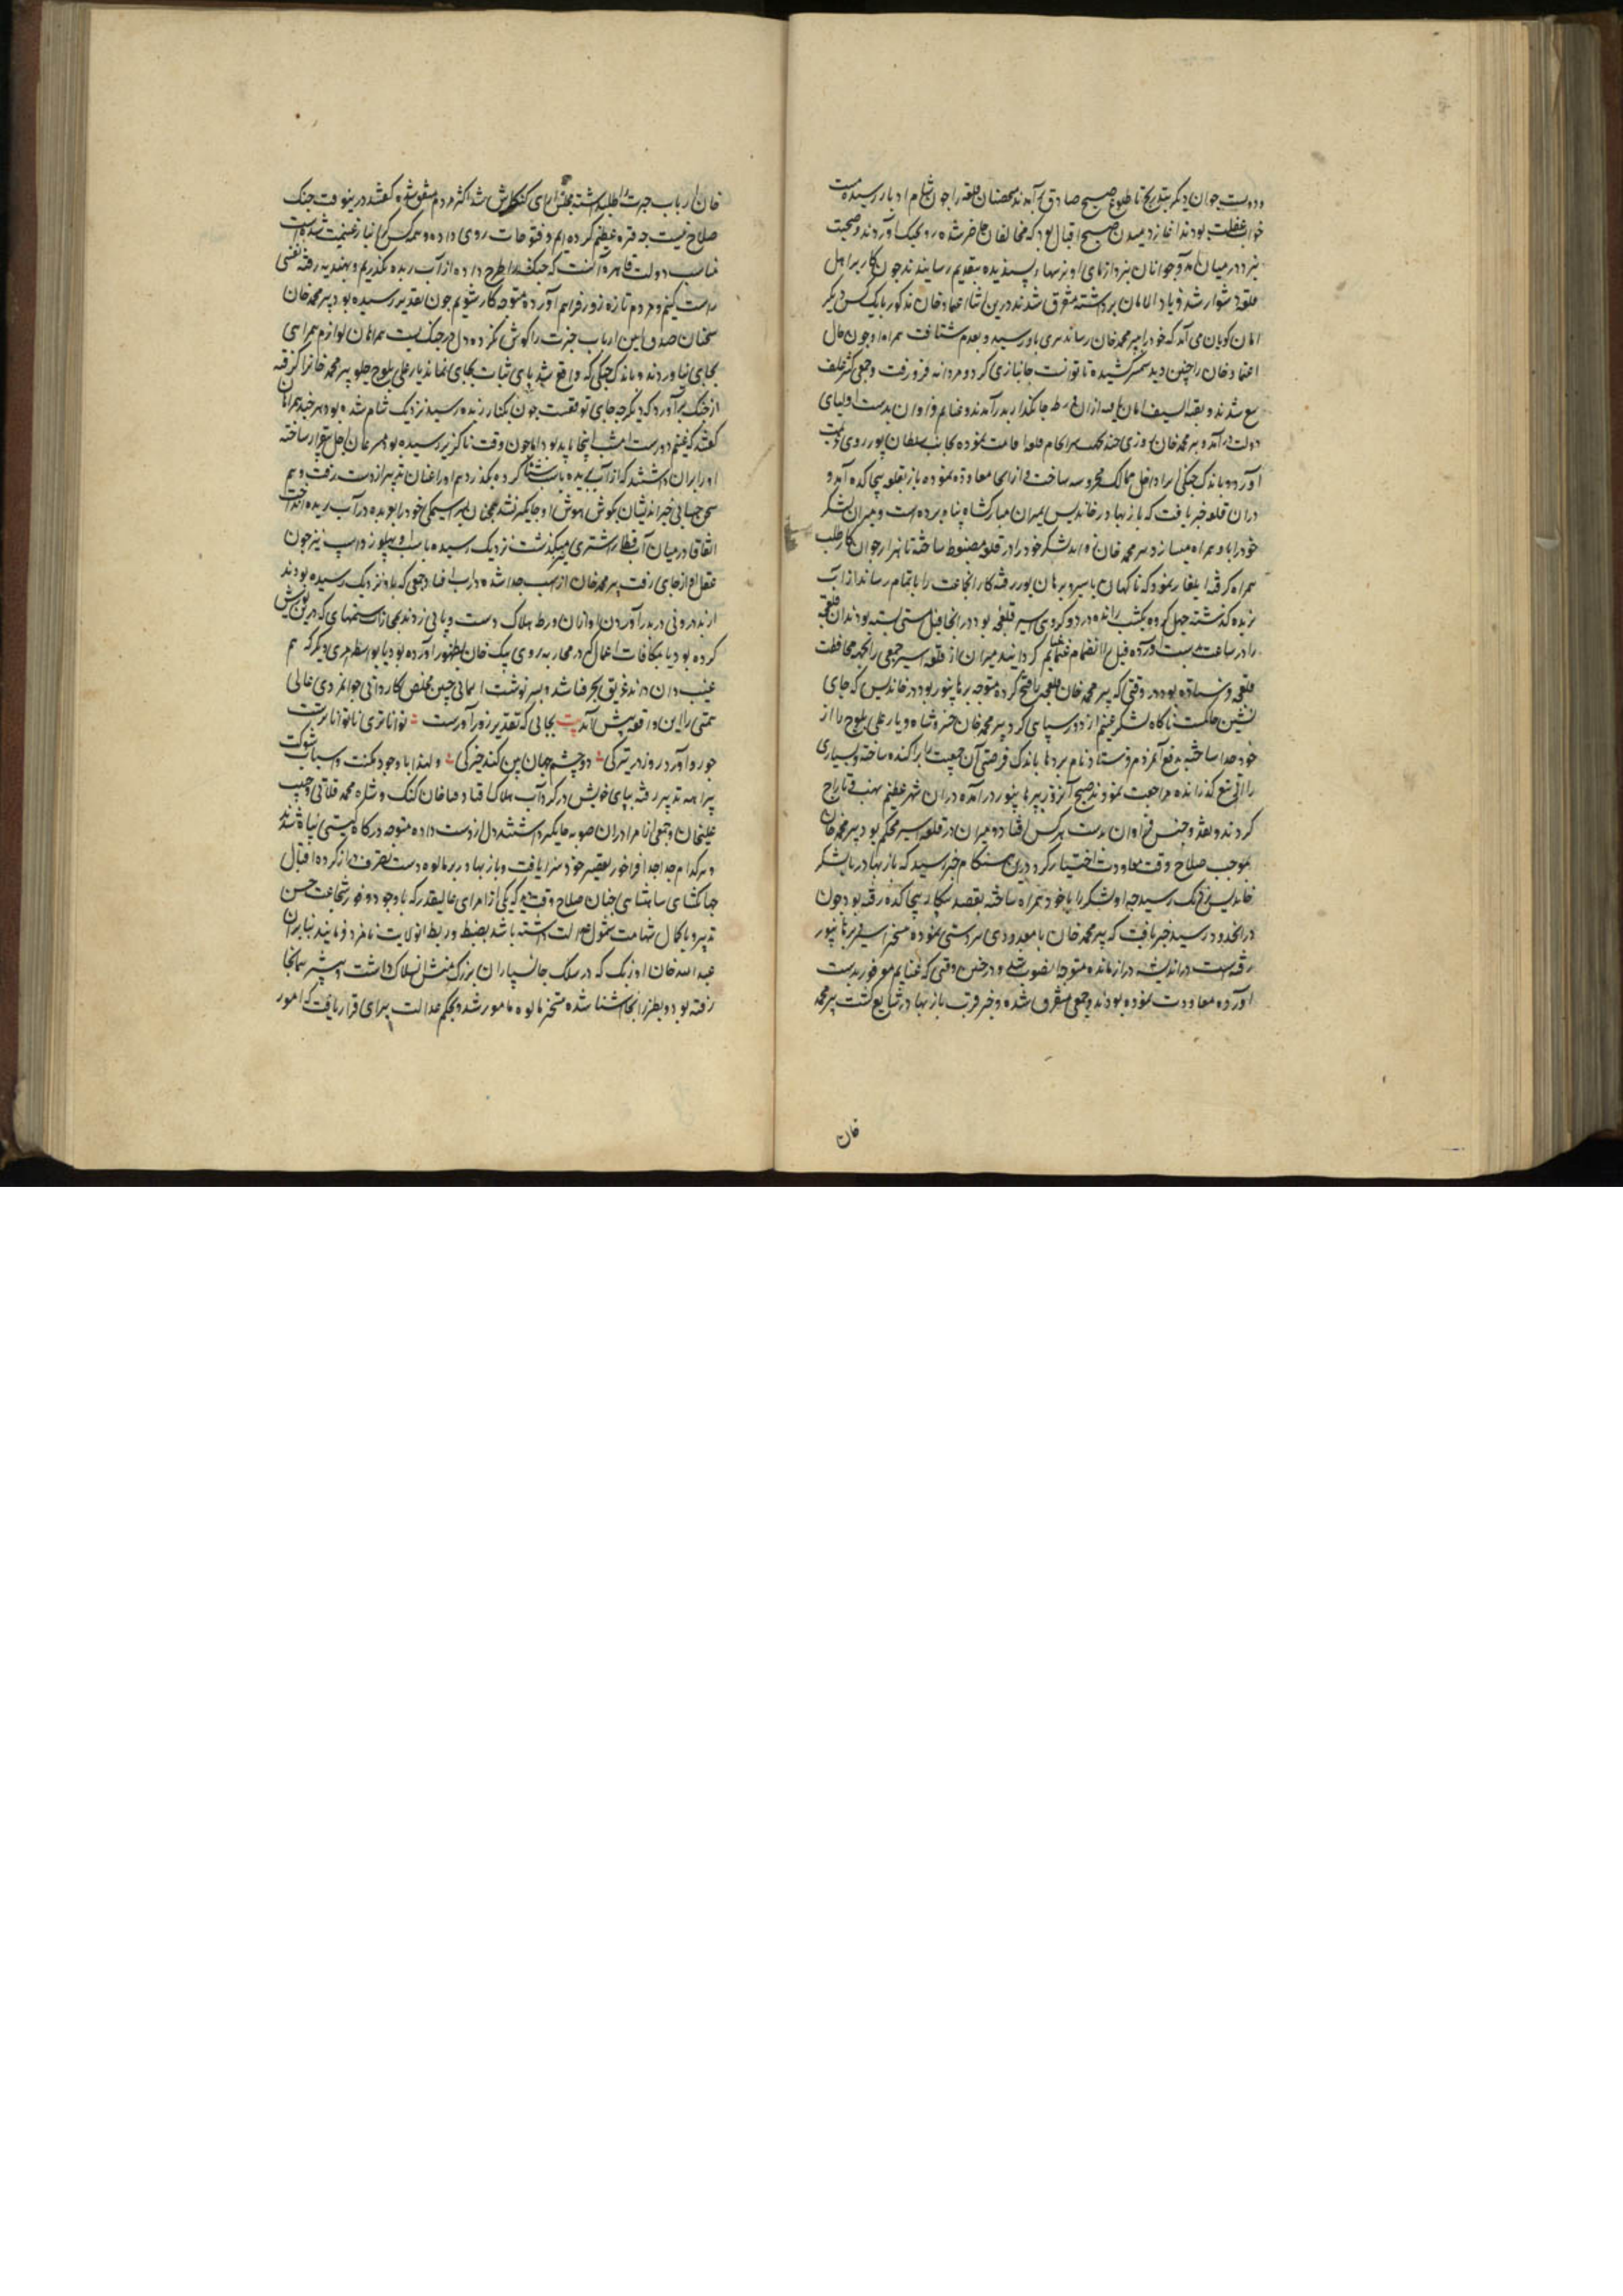 و دویست جوان دیگر بتدریج تا طلوع صبح صادق برآمدند متحصنان قلعه را چون شام ادبار رسیده مست
خواب غفلت بودند آغاز دمیدن صبح اقبال بود که مخالفان حاضر شده رو بجنگ آوردند و صحبت
نبرد در میان آمد و جوانان نبردآزمای او نرسهای پسندیده بتقدیم رسانیدند چون کار بر اهل
قلعه دشوار شد فریاد الامان برداشته متفرق شدند درین اثنا اعتماد خان مذکور با یک کس دیگر
امان گویان می آمد که خود را بپیر محمد خان رساند تیری باو رسید و بعدم شتافت همراه او چون حال
اعتماد خان را چنین دید شمشیر کشیده تا توانست جانبازی کرد و مردانه فرو رفت و جمعی کثیر علف
تیغ شدند و بقیة السیف امان یافته ازان ورطه جانگداز بدر آمدند و غنایم فراوان بدست اولیای
دولت در آمد و پیر محمد خان روزی چند بجهت سرانجام قلعه اقامت نموده بجانب سلطان پور روی همت
آورد و باندک جنگی آنرا داخل ممالک محروسه ساخت و ازانجا معاودت نموده باز بقلعه بیجاگده آمد و
دران قلعه خبر یافت که باز بهادر در خاندیس بمیران مبارکشاه پناه برده است و میران لشکر
خود را باو همراه میسازد پیر محمد خان فواید لشکر خود را در قلعه مضبوط ساخته تا هزار جوان کارطلب
همراه گرفته ایلغار نمود که ناگهان باسیر و برهان پور رفته کار آنجماعت را باتمام رساند از آب
نربده گذشته چهل کروه یکشب رانده در دو کروهی اسیر قلعچه بود در آنجا فیل مستی بسته بودند آن قلعچه
را در ساعت بدست آورده فیل را انضمام غنایم گردانید میران از قلعه اسیر جمعی را بجهت محافظت
قلعچه فرستاده بود در وقتی که پیر محمد خان قلعچه را فتح کرده متوجه برهانپور بود در خاندیس که جای
نشین حاکمست ناگاه لشکر غنیم از دور سیاهی کرد پیر محمد خان خسرو شاه و یار علی بلوچ را از
خود جدا ساخته بدفع آنمردم فرستاد نام بردها باندک فرصتی آن جمعیت را پراکنده ساخته و بسیاری
را از تیغ گذرانیده مراجعت نمودند صبح آنروز ببرهانپور در آمده دران شهر عظیم نهب و تاراج
کردند و نقد و جنس فراوان بدست هر کس افتاد و میران در قلعه اسیر محکم بود پیر محمد خان
بموجب صلاح وقت معاودت اختیار کرد درین هنگام خبر رسید که باز بهادر با لشکر
خاندیس نزدیک رسید چه او لشکر را با خود همراه ساخته بقصد پیکار به بیجاگده رفته بود چون
در آنحدود رسید خبر یافت که پیر محمد خان با معدودی سردستی نموده مسخر اسیر و برهانپور
رفته است در اندیشه دراز مانده متوجه آنصوب شد و در چنین وقتی که غنایم موفور بدست
آورده معاودت نموده بودند و جمعی متفرق شده و خبر قرب باز بهادر شایع گشت پیر محمد
خان
خان ارباب جبرت را طلبداشته مجلس آرای کنگاش شد اکثر مردم متفق شده گفتند درینوقت جنگ
صلاح نیست چه فتره عظیم کرده ایم و فتوحات روی داده و همه کس گرانبار غنیمت شده است
مناسب دولت قاهره آنست که جنگ را طرح داده از آب نربده بگذریم و بهندیه رفته نفسی
راست کنیم و مردم تازه زور فراهم آورده متوجه کار شویم چون تقدیر رسیده بود پیر محمد خان
سخنان صدق آمین ارباب جبرت را گوش نکرده دل در جنگ بست همراهان لوازم همراهی
بجای نیاوردند و باندک جنگی که واقع شد پای ثبات بجای نماند یار علی بلوچ جلو پیر محمد خانرا گرفته
از جنگ برآورد که دیگر چه جای توقفست چون بکنار نربده رسید نزدیک شام شده بود هر چند همراهان
گفتند که غنیم دورست امشب اینجا باید بود اما چون وقت ناگزیر رسیده بود
او را بران داشتند که از آب نربده بایست شناکرده بگذرد هم او را عنان تدبیر از دست رفت و هم
سخن جهانی خیراندیشان بگوش هوش او جایگیر نشد همچنان بسراسیمگی خود را بوبه در آب نربده انداخت
اتفاقا در میان آب قطار شتری میگذشت نزدیک رسیده باسب او پهلو زد اسپ نیز چون
عقل او از جای رفت پیر محمد خان از اسب جدا شده در آب افتاد جمعی که باو نزدیک رسیده بودند
از بددرونی در برآوردن او ازان ورطه هلاک دست و پایی نزدند بمجازات ستمهایی که درین یورش
کرده بود یا بمکافات اعمال که در محاربه بروی بیک خان بظهور آورده بود یا بواسطه امری دیگر که هم
غیب دان داند غریق بحر فنا شد و بسرنوشت آسمانی چنین مخلص کاردانی جوانمردی عالی
همتی را این واقعه پیش آمد بیت بجایی که تقدیر زورآورست توانا تری ناتوانا ترست
خور و آورد روز در تیرگی دو چشم جهان بین کند خیرگی و لهذا با وجود مکنت و اسباب شوکت
پیراهه تدبیر رفته بپای خویش در گرداب هلاک افتاد قیا خان کنگ و شاه محمد قلاتی و حبیب
علیخان و جمعی از امرا دران صوبه جایگیر داشتند دل از دست داده متوجه درگاه گیتی پناه شدند
و هر کدام جدا جدا فراخور تقصیر خود سزا یافت و باز بهادر بر مالوه دست تصرف دراز کرده اقبال
جهانگشای شاهنشاهی چنان صلاح وقت دید که یکی از امرای عالیقدر که با وجود وفور شجاعت حسن
تدبیر و با کمال شهامت شمول عدالت داشته باشد بضبط و ربط آنولایت نامزد فرمایند بنابران
عبدالله خان اوزبک که در سلک جانسپاران بزرگ منش انسلاک داشت و پیشتر همانجا
رفته بود و بطرز آنجا آشنا شده مسخر مالوه مامور شد و بحکم عدالت پیرای قرار یافت که امور